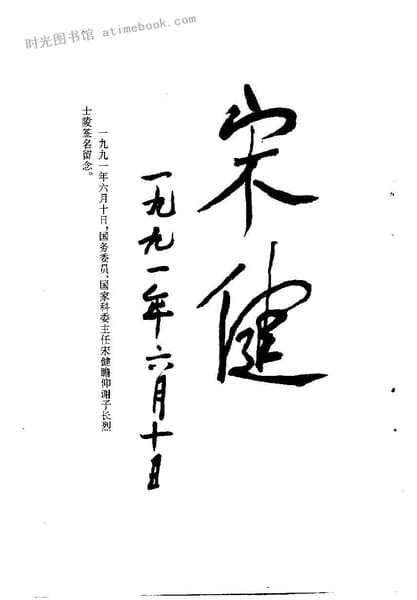 时光图书馆 atimebook.com
宋健
一九九一年六月十日
一九九一年六月十日，国务委员、国家科委主任宋健瞻仰谢子长烈
士陵签名留念。